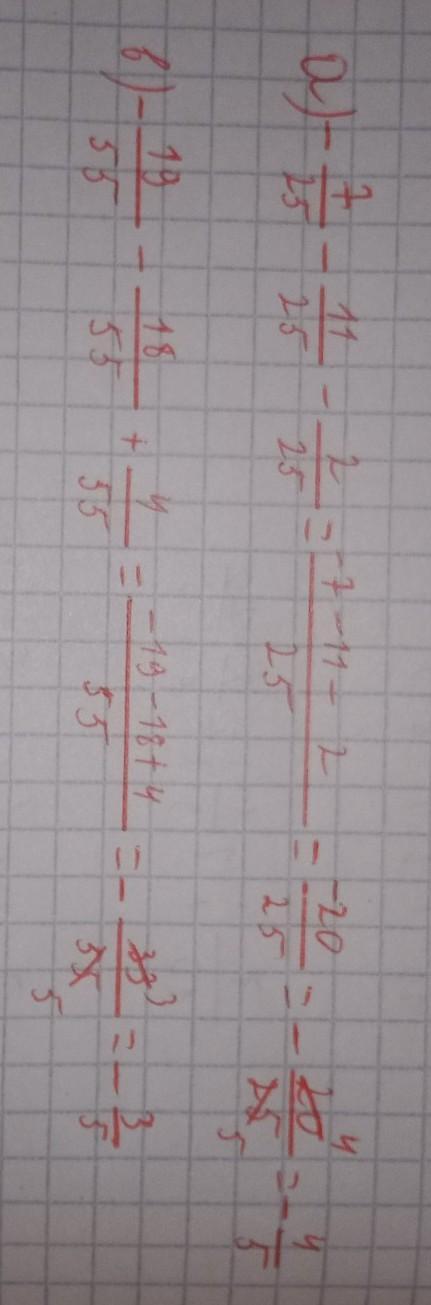 а) - 7/25 - 11/25 - 2/25 = -7-11-2/25 = -20/25 = - 20 4/25 5 = - 4/5
в) - 19/55 - 18/55 + 4/55 = -19-18+4/55 = - 33 3/55 5 = - 3/5